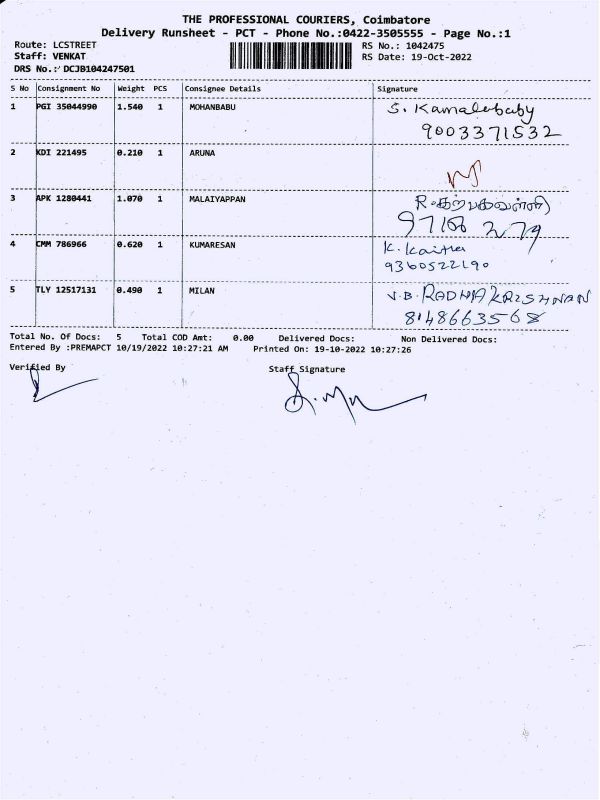 THE PROFESSIONAL COURIERS, Coimbatore
Delivery Runsheet - PCT - Phone No.:0422-3505555 - Page No.:1
Route: LCSTREET RS No.: 1042475
Staff: VENKAT RS Date: 19-Oct-2022
DRS No.: DCJB104247501
S No Consignment No Weight PCS Consignee Details Signature
1 PGI 35044990 1.540 1 MOHANBABU S. Kamalebaby
9003371532
2 KDI 221495 0.210 1 ARUNA
3 APK 1280441 1.070 1 MALAIYAPPAN R.கற்பகவள்ளி
4 CMM 786966 0.620 1 KUMARESAN K.
9360522190
5 TLY 12517131 0.490 1 MILAN V.B. RADHA KRISHNAN
8148663568
Total No. Of Docs: 5 Total COD Amt: 0.00 Delivered Docs: Non Delivered Docs:
Entered By :PREMAPCT 10/19/2022 10:27:21 AM Printed On: 19-10-2022 10:27:26
Verified By Staff Signature